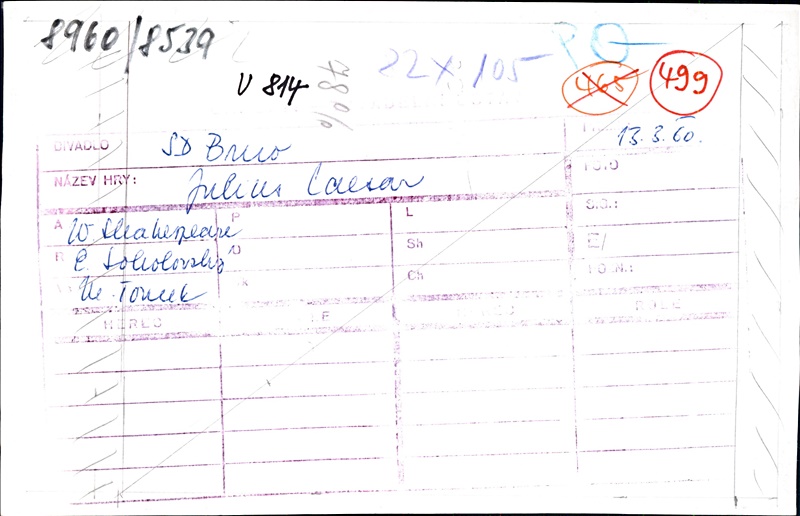 8960/8539
V 814
48%
22 X 105
PO
465
499
DIVADLO SD Brno
13.3.60.
NÁZEV HRY: Julius Caesar
FOTO
A W Shakespeare P L S.D.:
R E. Sokolovský Sh E/
Vl. Tomek Ch
HEREC HEREC ROLE